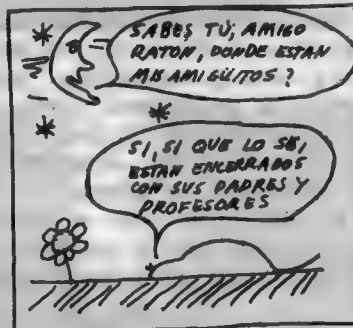 SABES TÚ, AMIGO
RATON, DONDE ESTAN
MIS AMIGÜITOS?
SI, SI QUE LO SE,
ESTAN ENCERRADOS
CON SUS PADRES Y
PROFESORES